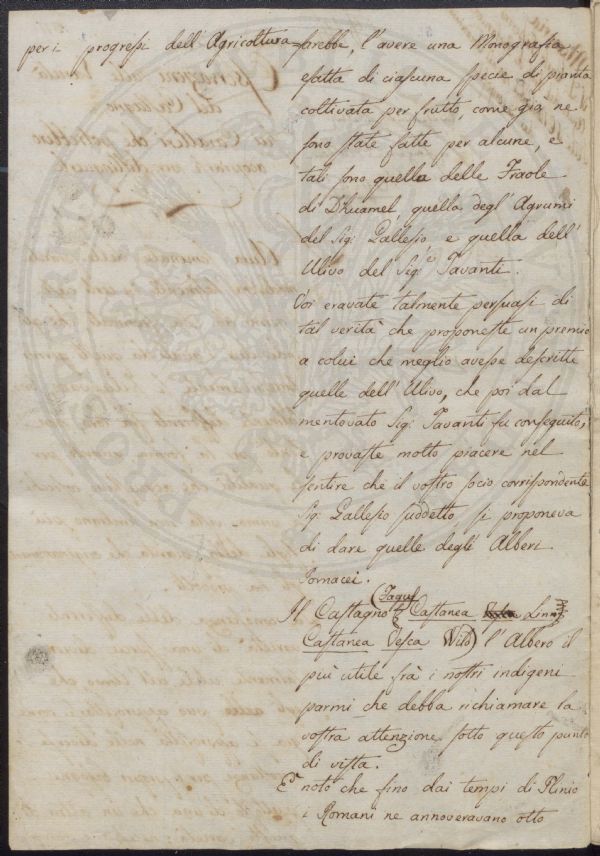 per i progressi dell'Agricoltura sarebbe, l'avere una Monografia
esatta di ciascuna specie di pianta
coltivata per frutto, come gia ne
sono state fatte per alcune, e
tali sono quella delle Fraole
di Dhuamel, quella degl'Agrumi
del Sig: Gallesio, e quella dell'
Ulivo del Sig.e Tavanti.
Voi eravate talmente persuasi di
tal verità che proponeste un premio
a colui che meglio avesse descritte
quelle dell'Ulivo, che poi dal
mentovato Sig: Tavanti fu conseguito,
e provaste molto piacere nel
sentire che il vostro socio corrispondente
Sig: Gallesio suddetto, si proponeva
di dare quelle degli Alberi
Pomacei.
Il Castagno (Fagus Castanea Linn:
Castanea Vesca Wild) l'Albero il
più utile frà i nostri indigeni
parmi che debba richiamare la
vostra attenzione sotto questo punto
di vista.
E' noto che fino dai tempi di Plinio
i Romani ne annoveravano otto